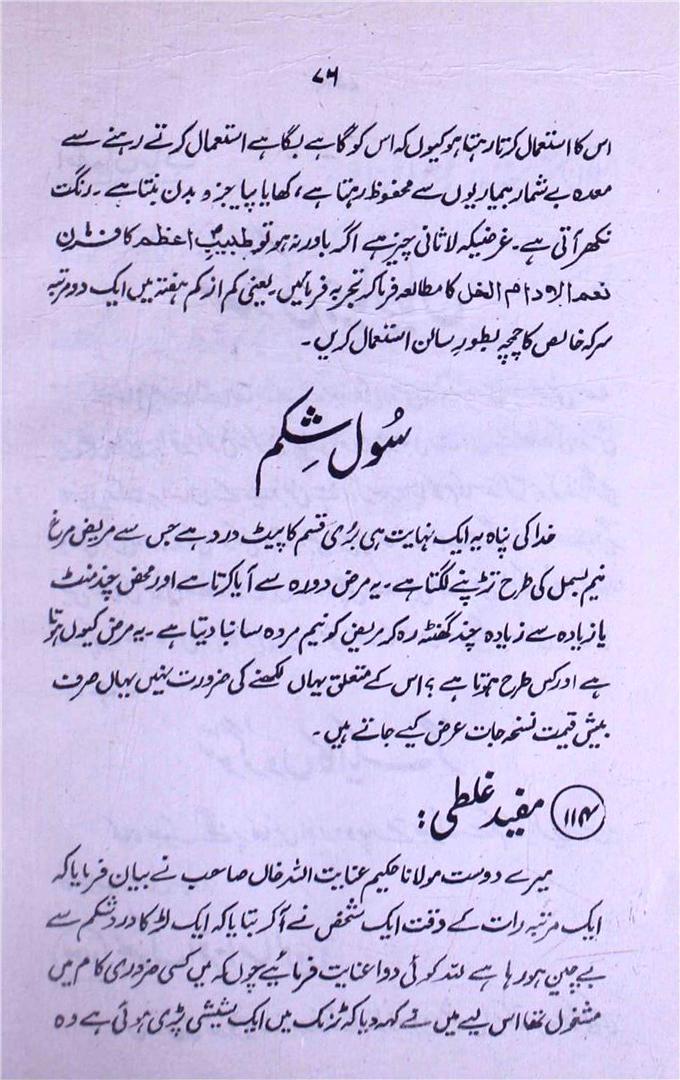 ۷۶
اس کا استعمال کرتا رہتا ہو کیوں کہ اس کو گاہے بگاہے استعمال کرتے رہنے سے
معدہ بے شمار بیماریوں سے محفوظ رہتا ہے، کھایا پیا جزو بدن بنتا ہے۔ رنگت
نکھر آتی ہے۔ غرضیکہ لاثانی چیز ہے اگر باور نہ ہو تو طبیبِ اعظم کا فرمان
نعم الادام الخل کا مطالعہ فرما کر تجربہ فرمائیں۔ یعنی کم از کم ہفتہ میں ایک دو مرتبہ
سرکہ خالص کا چمچہ بطور سالن استعمال کریں۔
سُول شکمِ
خدا کی پناہ یہ ایک نہایت ہی بُری قسم کا پیٹ درد ہے جس سے مریض مرغ
نیم بسمل کی طرح تڑپنے لگتا ہے۔ یہ مرض دورہ سے آیا کرتا ہے اور محض چند منٹ
یا زیادہ سے زیادہ چند گھنٹہ رہ کر مریض کو نیم مردہ سا بنا دیتا ہے۔ یہ مرض کیوں ہوتا
ہے اور کس طرح ہوتا ہے؟ اس کے متعلق یہاں لکھنے کی ضرورت نہیں یہاں صرف
بیش قیمت نسخہ جات عرض کیے جاتے ہیں۔
۱۱۴ مفید غلطی:
میرے دوست مولانا حکیم عنایت اللہ خاں صاحب نے بیان فرمایا کہ
ایک مرتبہ رات کے وقت ایک شخص نے آکر بتایا کہ ایک لڑکا درد شکم سے
بے چین ہو رہا ہے للہ کوئی دوا عنایت فرمائیے چوں کہ میں کسی ضروری کام میں
مشغول تھا اس لیے میں نے کہہ دیا کہ ٹرنک میں ایک شیشی پڑی ہوئی ہے وہ